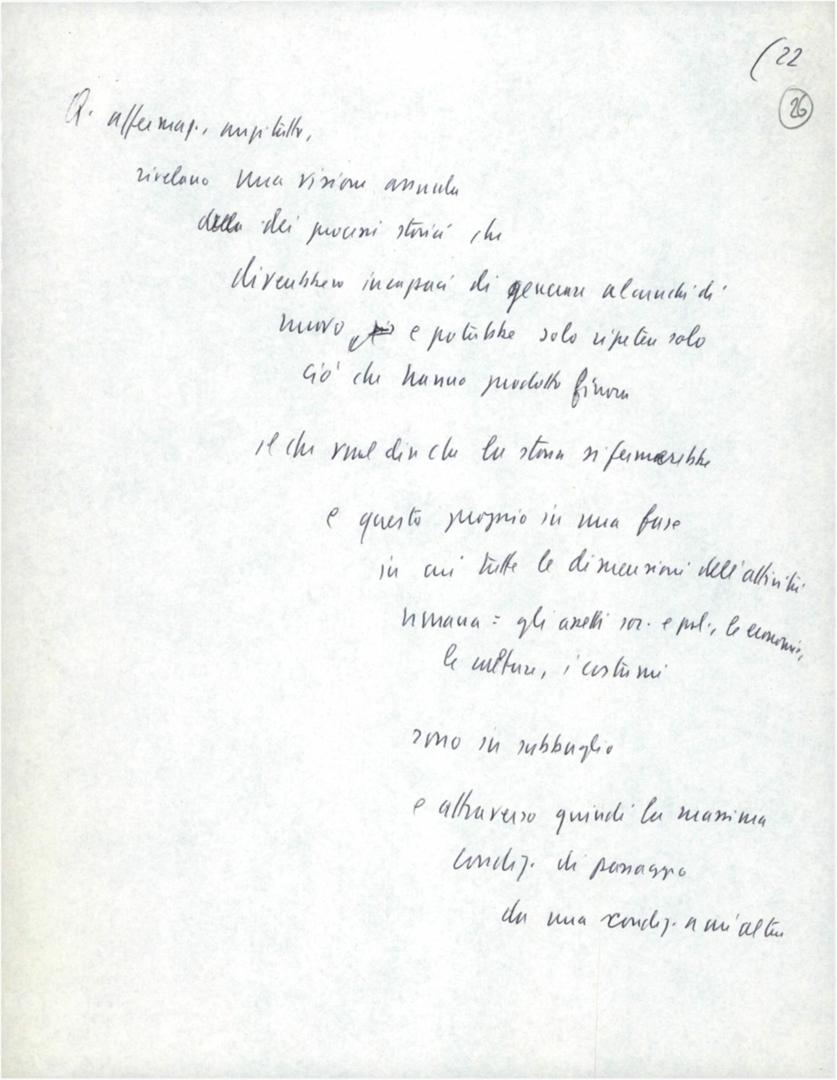 (22
26
Q. affermaz., anzitutto,
rivelano una visione assurda
della dei processi storici che
diverrebbero incapaci di generare alcunché di
nuovo e potrebbe solo ripetere solo
ciò che hanno prodotto finora
il che vuol dire che la storia si fermerebbe
e questo proprio in una fase
in cui tutte le dimensioni dell'attività
umana = gli assetti soc. e pol., le economie,
le culture, i costumi
sono in subbuglio
e attraverso quindi la massima
condiz. di passaggio
da una condiz. a un'altra